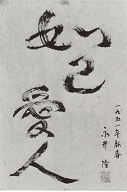 如己愛人
一九五一年新春
永井隆